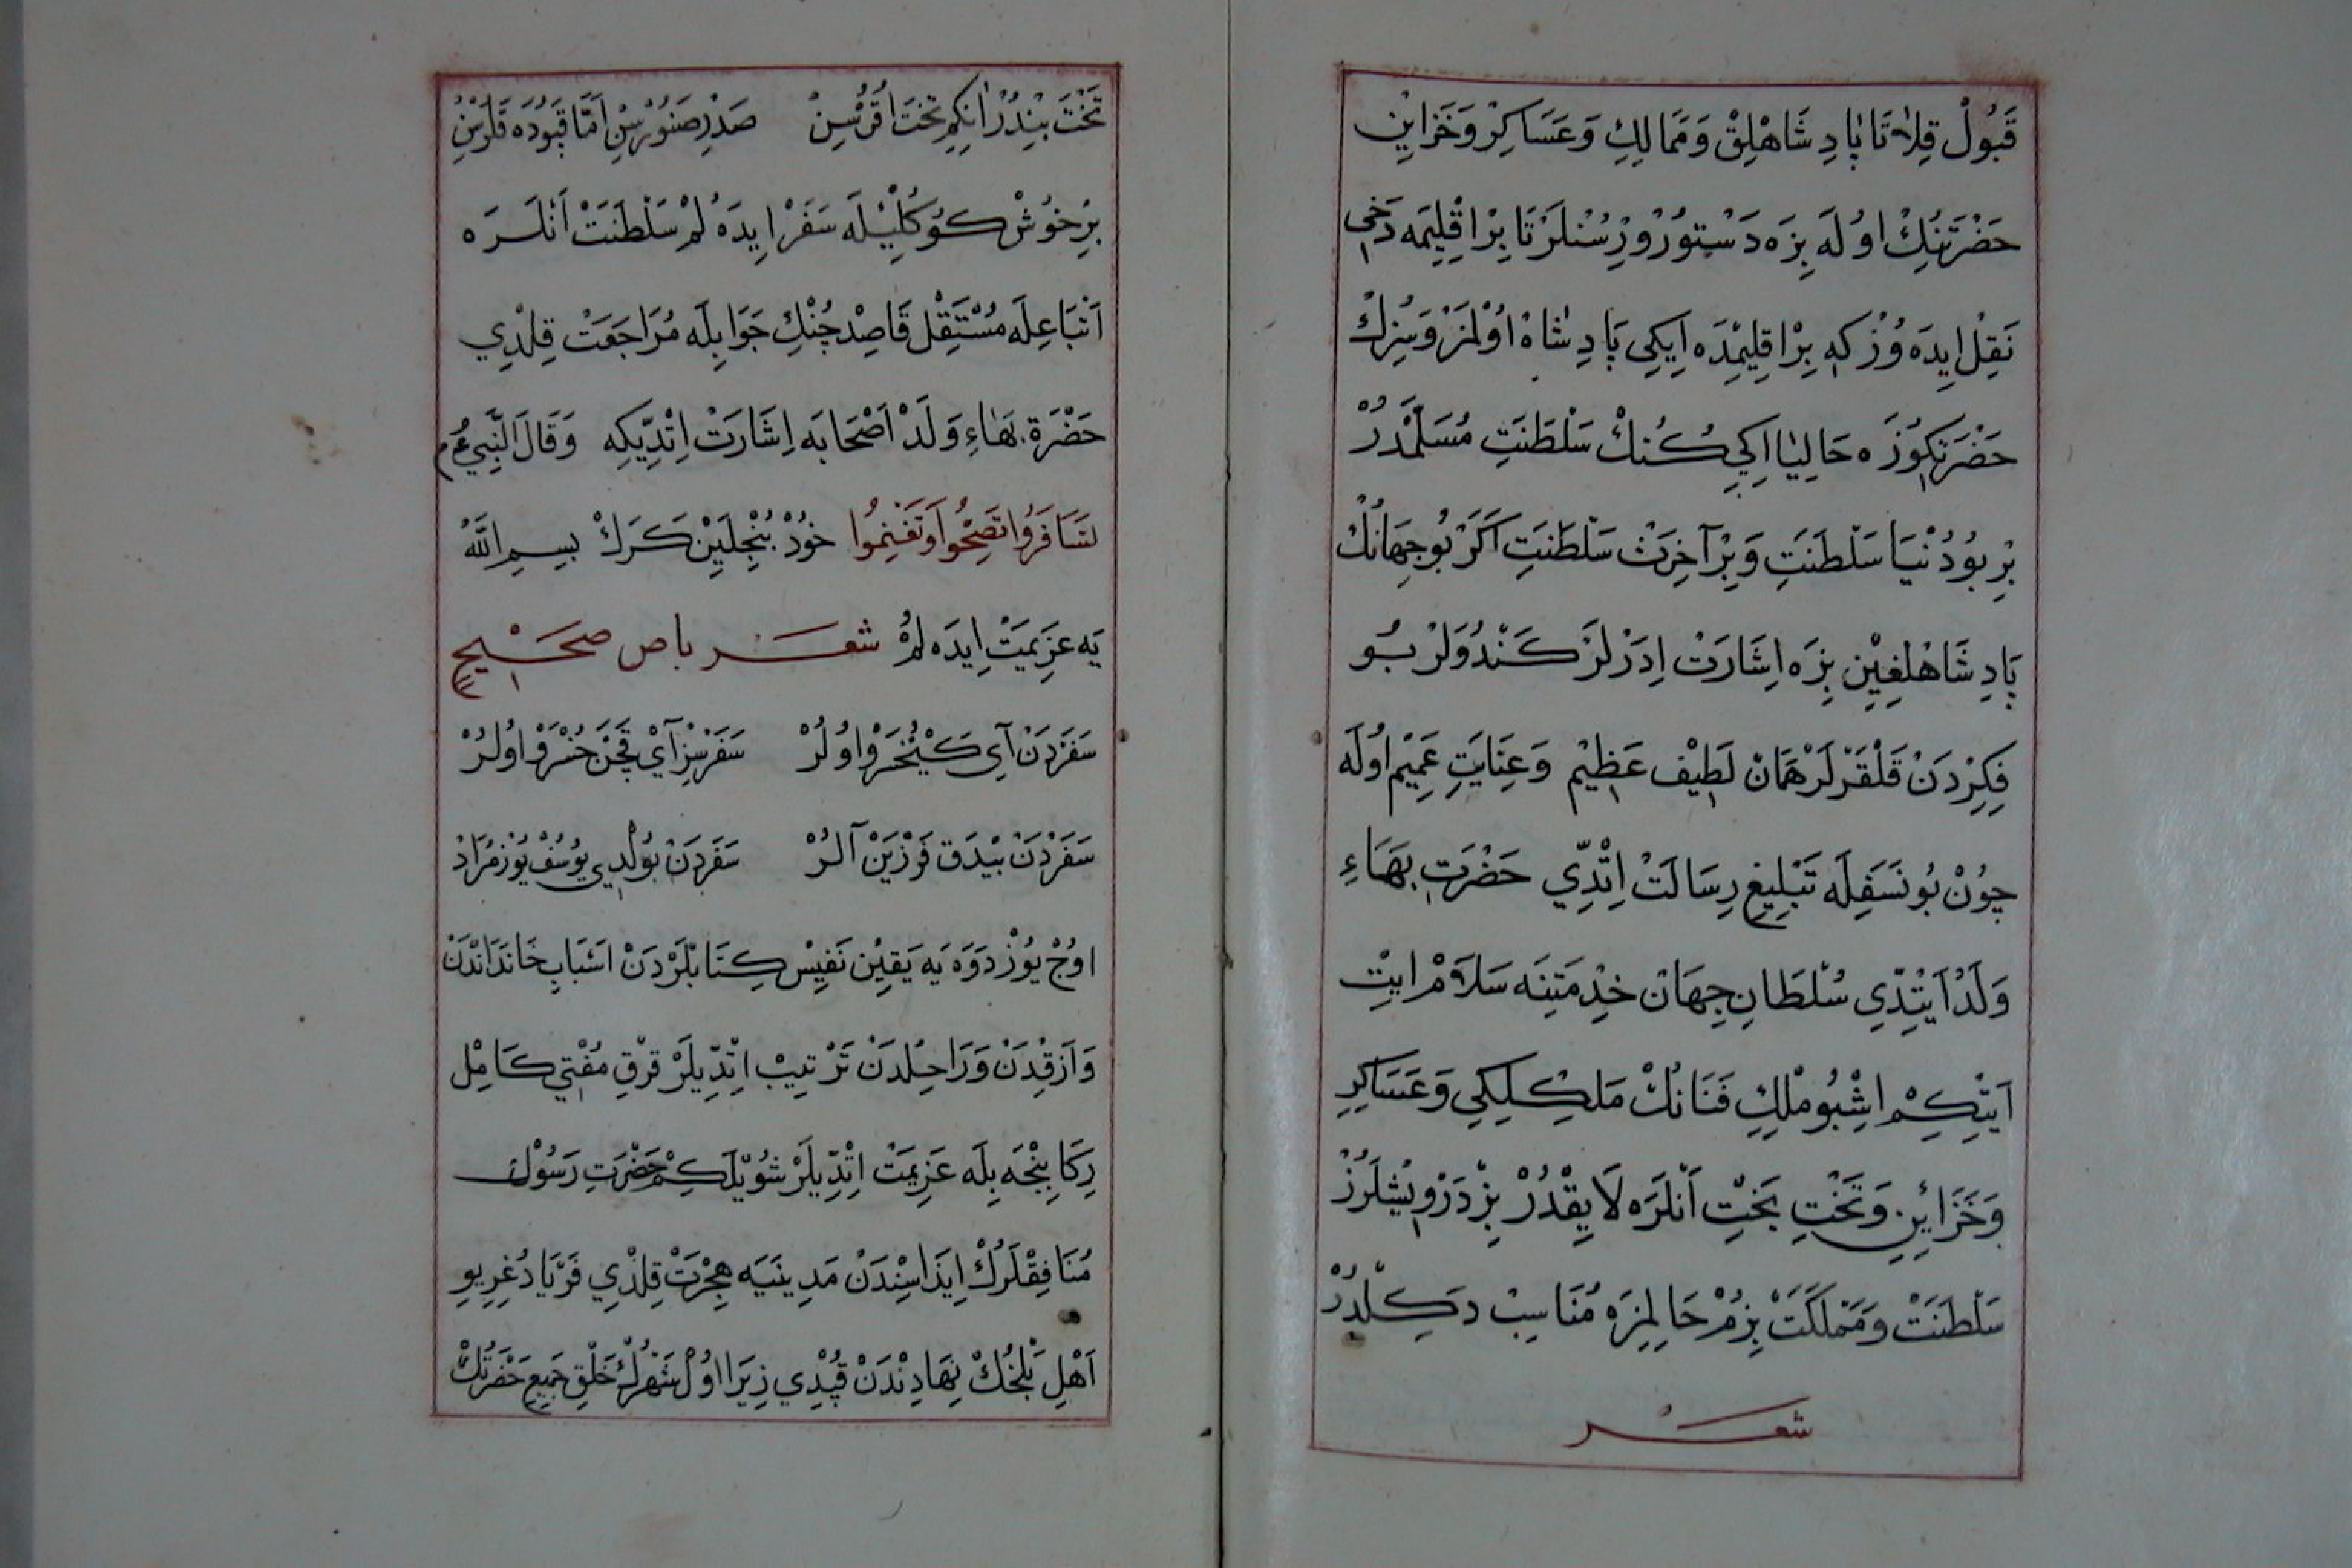 قَبُولْ قِلاَتَا پَادِ شَاهْلِقْ وَمَمَالِكِ وَعَسَاكِرْ وَخَزَايِنِ
حَضْرَتِنُكْ اوُلَه بِزَه دَسْتوُرْ وِرْسُنْلَرْ تَا بِرْ اقْلِيمَه دَخِي
نَقِلْ ايِدَه وُزْ كِه بِرْ اقِليِمْدَه اِيكِي پَادِ شَاهْ اوُلْمَزْ وَسِزِكْ
حَضْرَتِكوُزَه حَالِيَا اِكِي كُنُكْ سَلْطَنَتِ مُسَلَّمْدُرْ
بِرْ بوُ دُنْيَا سَلْطَنَتِ وَبِرْ آخِرَتْ سَلْطَنَتِ اَكَرْ بُو جِهَانُكْ
پَادِ شَاهْلِغِيْنِ بِزَه اِشَارَتْ اِدَرْلَرْ كَنْدُولَرْ بُو
فِكِرْدَنْ قَلْقَرْلَرْ هَمَانْ لَطِيْف عَظِيْمْ وَعِنَايَتِ عَمِيْمْ اوُلَه
چوُنْ بُو نَسَقِلَه تَبْلِيغِ رِسَالَتْ اِتْدِّي حَضْرَتِ بَهَاءِ
وَلَدْ اَيْتِدِّي سُلْطَانِ جِهَانْ خِذْمَتِنَه سَلاَمْ ايِتْ
اَيْتِكِمْ اشِْبُو مُلْكِ فَنَانُكْ مَلِكْلِكِي وَعَسَاكِرِ
وَخَزَائِنِ وَتَخْتِ بَخْتِ اَنْلَرَه لاَيِقْدُرْ بِزْ دَرْوِيشْلَرُزْ
سَلْطَنَتْ وَمَمْلَكَتْ بِزُمْ حَالِمِزَه مُنَاسِبْ دَكِلْدُرْ
شعر
تَخْتَ بِنِدُرْ اَنِكِمِ تَخْتَ اقُرْسِنْ صَدْرِ صَنُوُرْسِنْ اَمَّا قَپوُدَه قَلُرْسِنْ
بِرْ خوُشْ كوُكُلْيِلَه سَفَرْ ايِدَه لُمْ سَلْطَنَتْ اَنْلَرَه
اَتْبَاعِلَه مُسْتَقِلْ قَاصِدْ چُنْكِ جَوَابِلَه مُرَاجَعَتْ قِلْدِي
حَضْرَة بَهَاءِ وَلَدْ اَصْحَابَه اِشَارَتْ اِتْدِّيكِه وَقَالَ النَّبِيُّ عم
لتَسَافَرُوا تَصِحُّوا وَتَغْنِمُوا خوُدْ بُنْجِلَيِنْ كَرَكْ بِسِمِ اللّٰهْ
يَه عَزِيمَتْ اِيدَه لُمْ شعر باص صَحَيْحِ
سَفَرْدَنْ آىِ كَيْخُسْرَوْ اوُلُرْ سَفَرْسِزْ آىْ قَچَنْ خُسْرَوْ اوُلُرْ
سَفَرْدَنْ بَيْدَقِ فَرْزِيَنْ آلُرْ سَفَرْدَنْ بوُلْدِي يوُسُفْ يوُزْ مُرَادْ
اوُچْ يوُزْ دَوَه يَه يَقِيْنِ نَفِيِسْ كِتَابْلَرْدَنْ اَسْبَابِ خَانَدَانْدَنْ
وَاَزِقْدَنْ وَرَاحِلْدَنْ تَرْتيِبْ اِتْدِّيلَرْ قِرْقِ مُفْتِي كَامِلْ
رِكَابِنْجَه بِلَه عَزِيمَتْ اِتْدِّيلَرْ شُويْلَكِمْ حَضْرَتِ رَسُولْ
مُنَافِقْلَرُكْ اِيذَاسِنْدَنْ مَدِينَيَه هِجْرَتْ قِلْدِي فَرْيَادُ غِرِيوِ
اَهْلِ بَلْخُكْ نِهَادِنْدَنْ قُپْدِي زِيَرا اوُلْ شَهْرُكْ خَلْقِ جَمِيعِ حَضْرَتُكْ